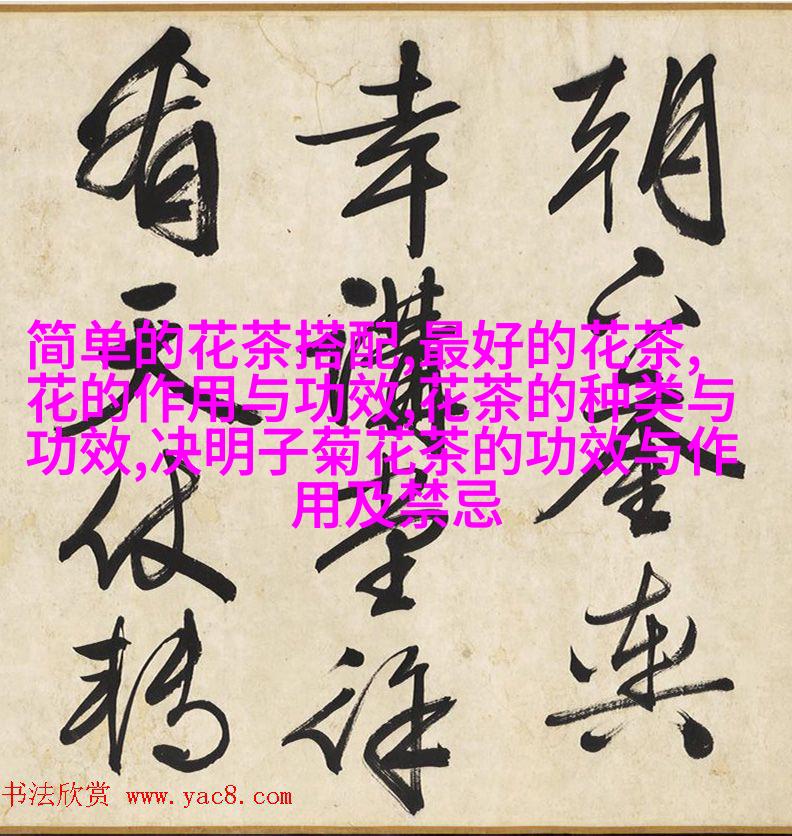 朝輿
幸徐
看天仗轉
简单的花茶搭配,最好的花茶,
花的作用与功效,花茶的种类与
功效,决明子菊花茶的功效与作
用及禁忌
书法欣赏 www.yac8.com